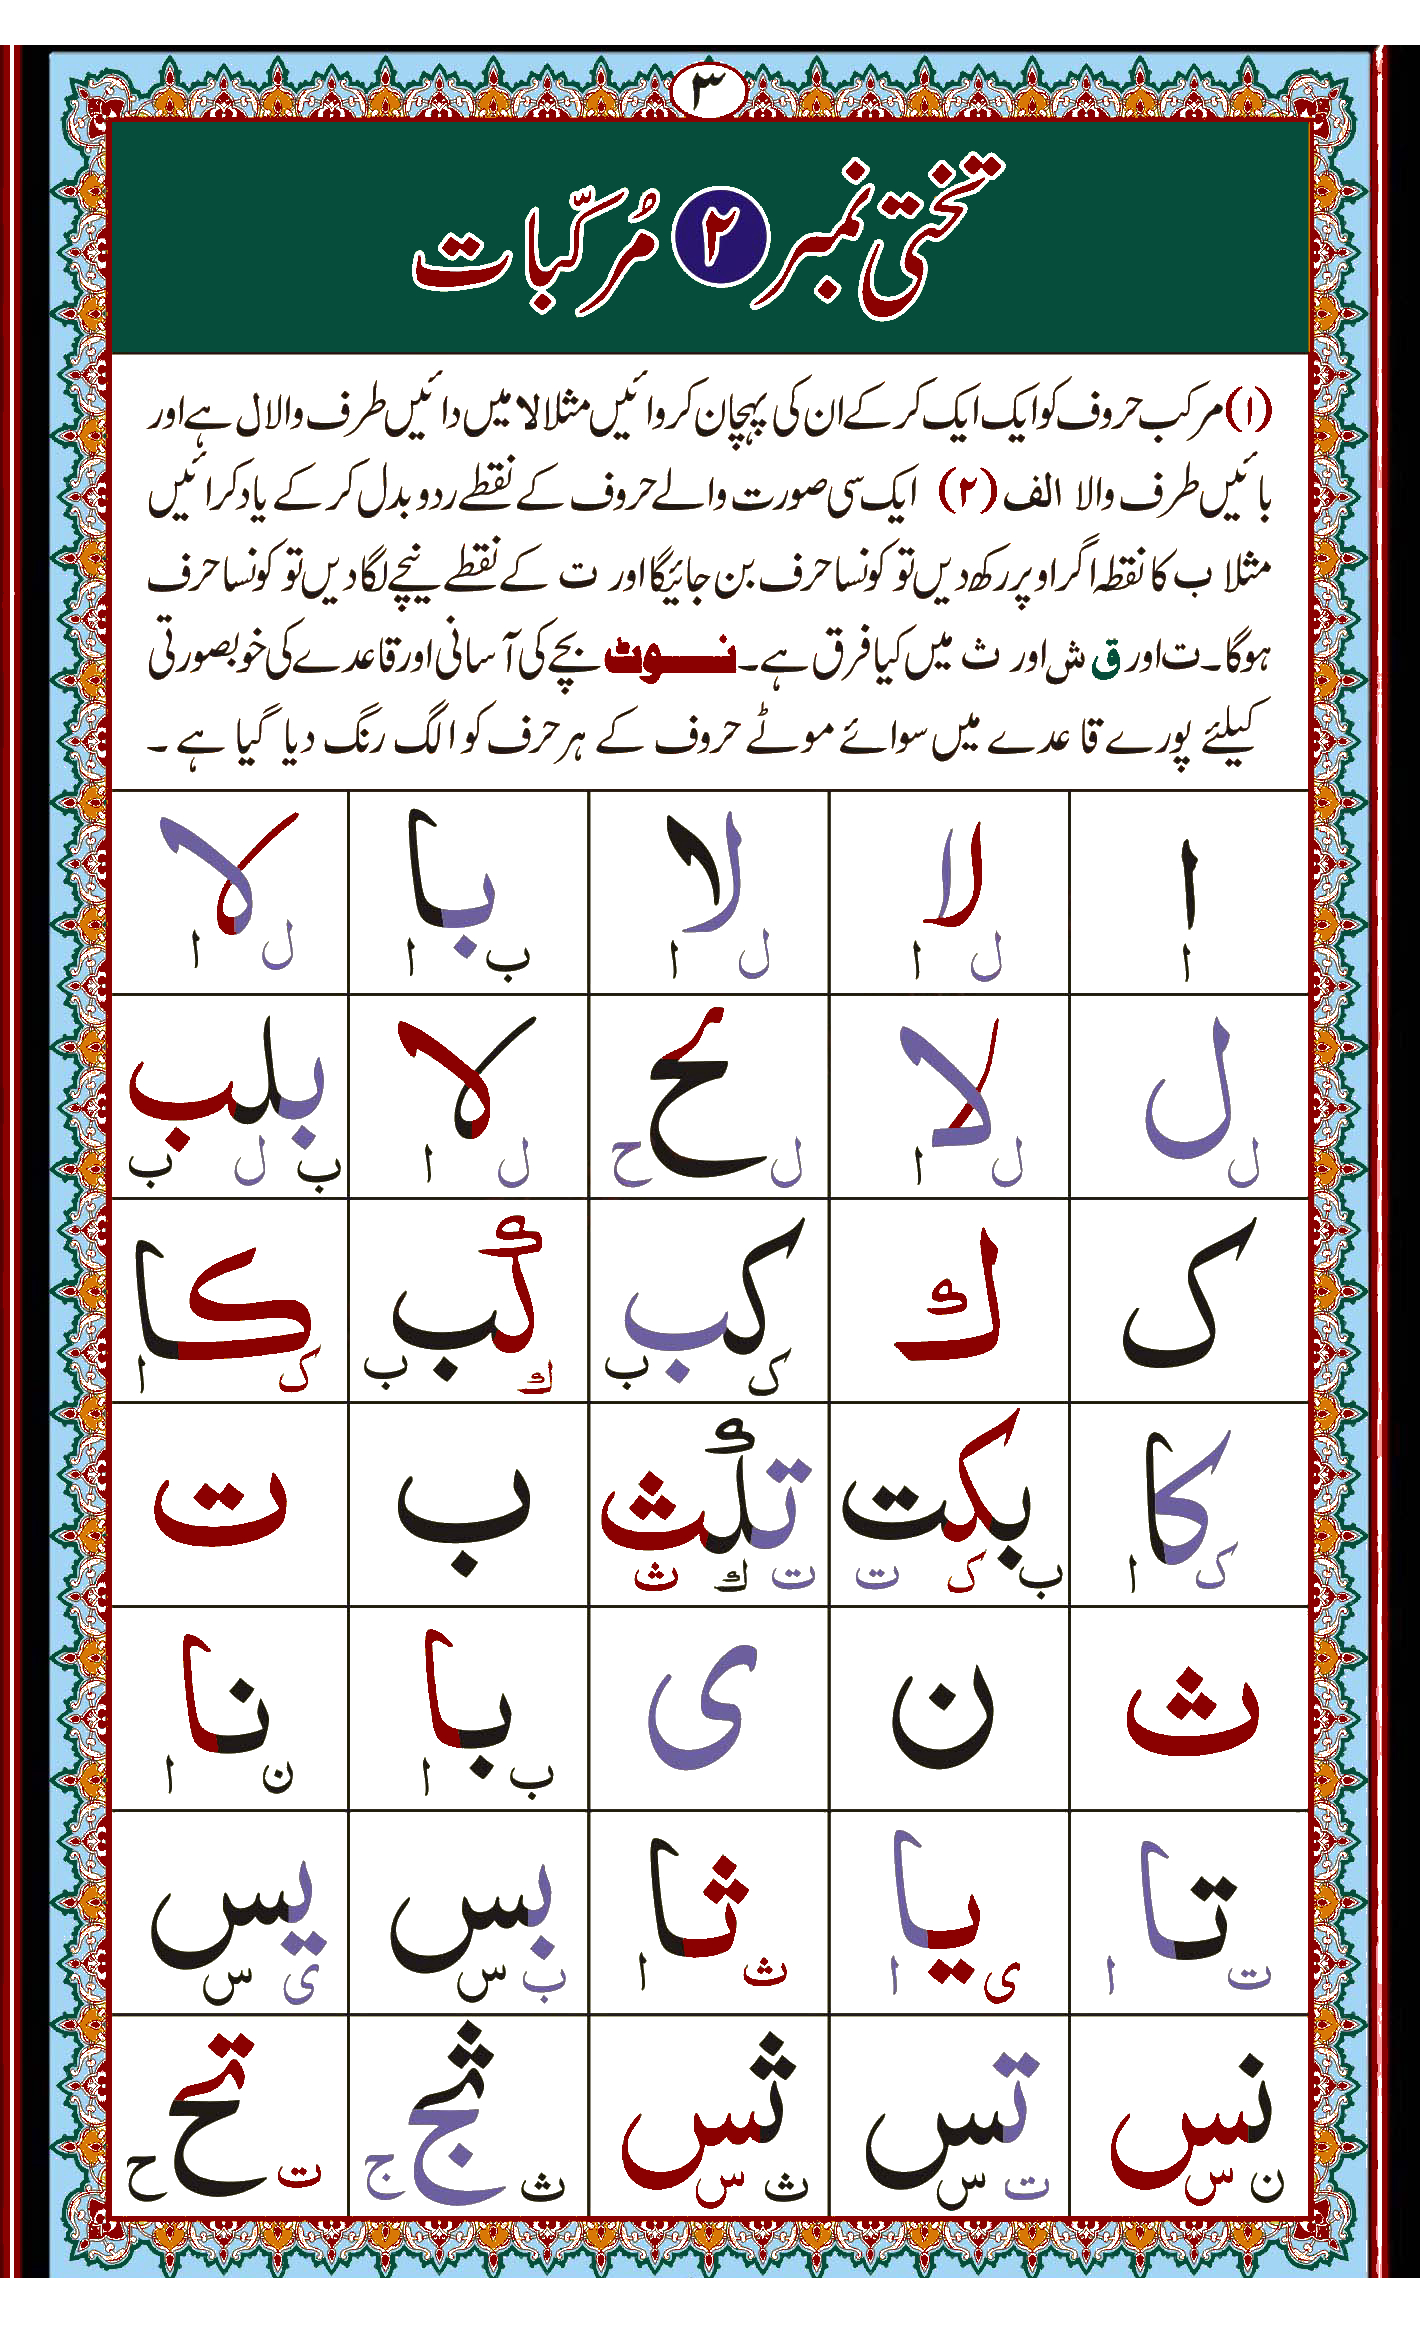 ۳
تختی نمبر ۲ مُرکّبات
(۱) مرکب حروف کو ایک ایک کر کے ان کی پہچان کروائیں مثلا لا میں دائیں طرف والا ل ہے اور
بائیں طرف والا الف (۲) ایک سی صورت والے حروف کے نقطے ردو بدل کر کے یاد کرائیں
مثلا ب کا نقطہ اگر اوپر رکھ دیں تو کونسا حرف بن جائیگا اور ت کے نقطے نیچے لگا دیں تو کونسا حرف
ہوگا۔ ت اور ق ش اور ث میں کیا فرق ہے۔ نوٹ بچے کی آسانی اور قاعدے کی خوبصورتی
کیلئے پورے قاعدے میں سوائے موٹے حروف کے ہر حرف کو الگ رنگ دیا گیا ہے ۔
ا لا لا با لا
ا ل ا ل ا ب ا ل ا
ل لا لح لا بلب
ل ل ا ل ح ل ا ب ل ب
ک ك کب كب كا
ک ب ك ب ک ا
کا بکت تكث ب ت
ک ا ب ک ت ت ك ث
ث ن ی با نا
ب ا ن ا
تا یا ثا بس یس
ت ا ی ا ث ا ب س ی س
نس تس ثس ثج تح
ن س ت س ث س ث ج ت ح